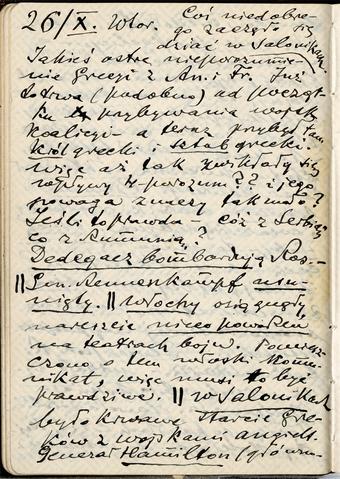 26/X. Wtor. Coś niedobre-
go zaczęło się
dziać w Salonikach.
Jakieś ostre nieporozumie-
nie Grecyi z An. i Fr. Już
to trwa (podobno) od począt-
ku przybywania wojsk
koalicyi - a teraz przybył tam
król grecki i sztab grecki.
więc aż tak
wpływy 4-porozum?? i jego
powaga znaczy tak mało?
Jeśli to prawda - cóż z Serbią,
co z Rumunią?
Dedeagacz bombardują Ros.-
|| Gen. Rennenkampf usu-
nięty. || Włochy osiągnęły
nareszcie nieco powodzen
na teatrach boju. Pomiesz-
czono o tem włoski Komu-
nikat, więc musi to być
prawdziwe. || w Salonikach
było krwawe starcie Gre-
ków z wojskami angiels.
Generał Hamilton (główn-